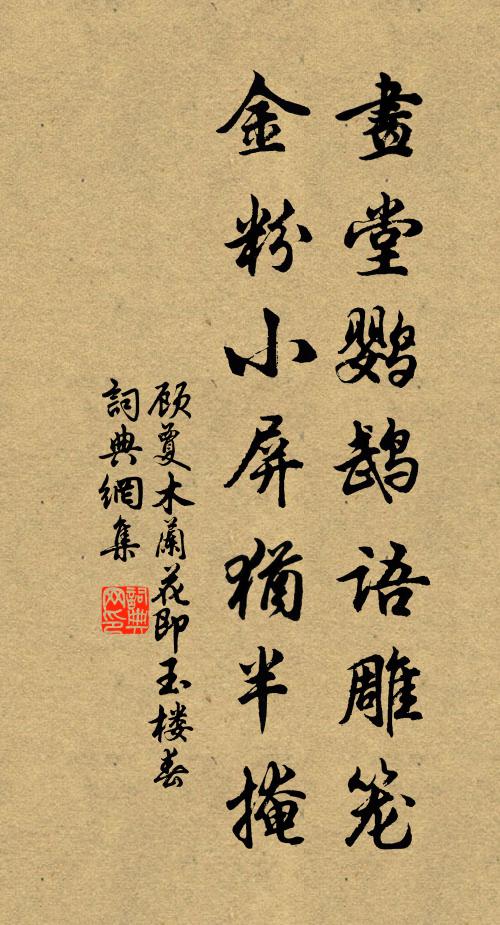 畫堂鹦鵡语雕笼
金粉小屏犹半掩
顾夐木蘭花即玉楼春
詞典網集
詞典网印